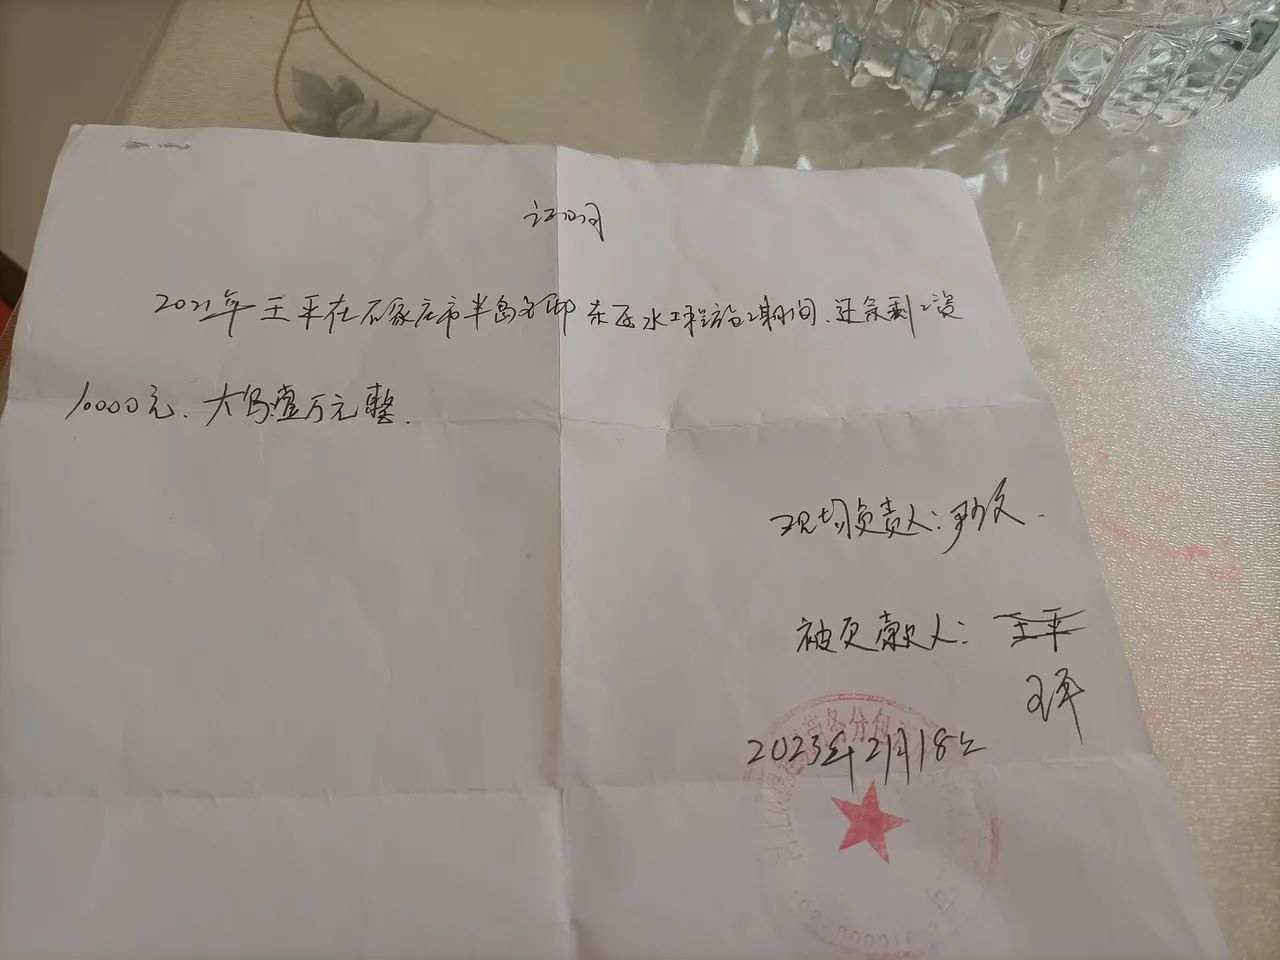 证明
2021年王平在石家庄市半岛名邸东区水工程施工期间.还余剩工资
10000元.大写壹万元整.
现场负责人:
被欠款人: 王平
王平
2023年2月18日
劳务分包